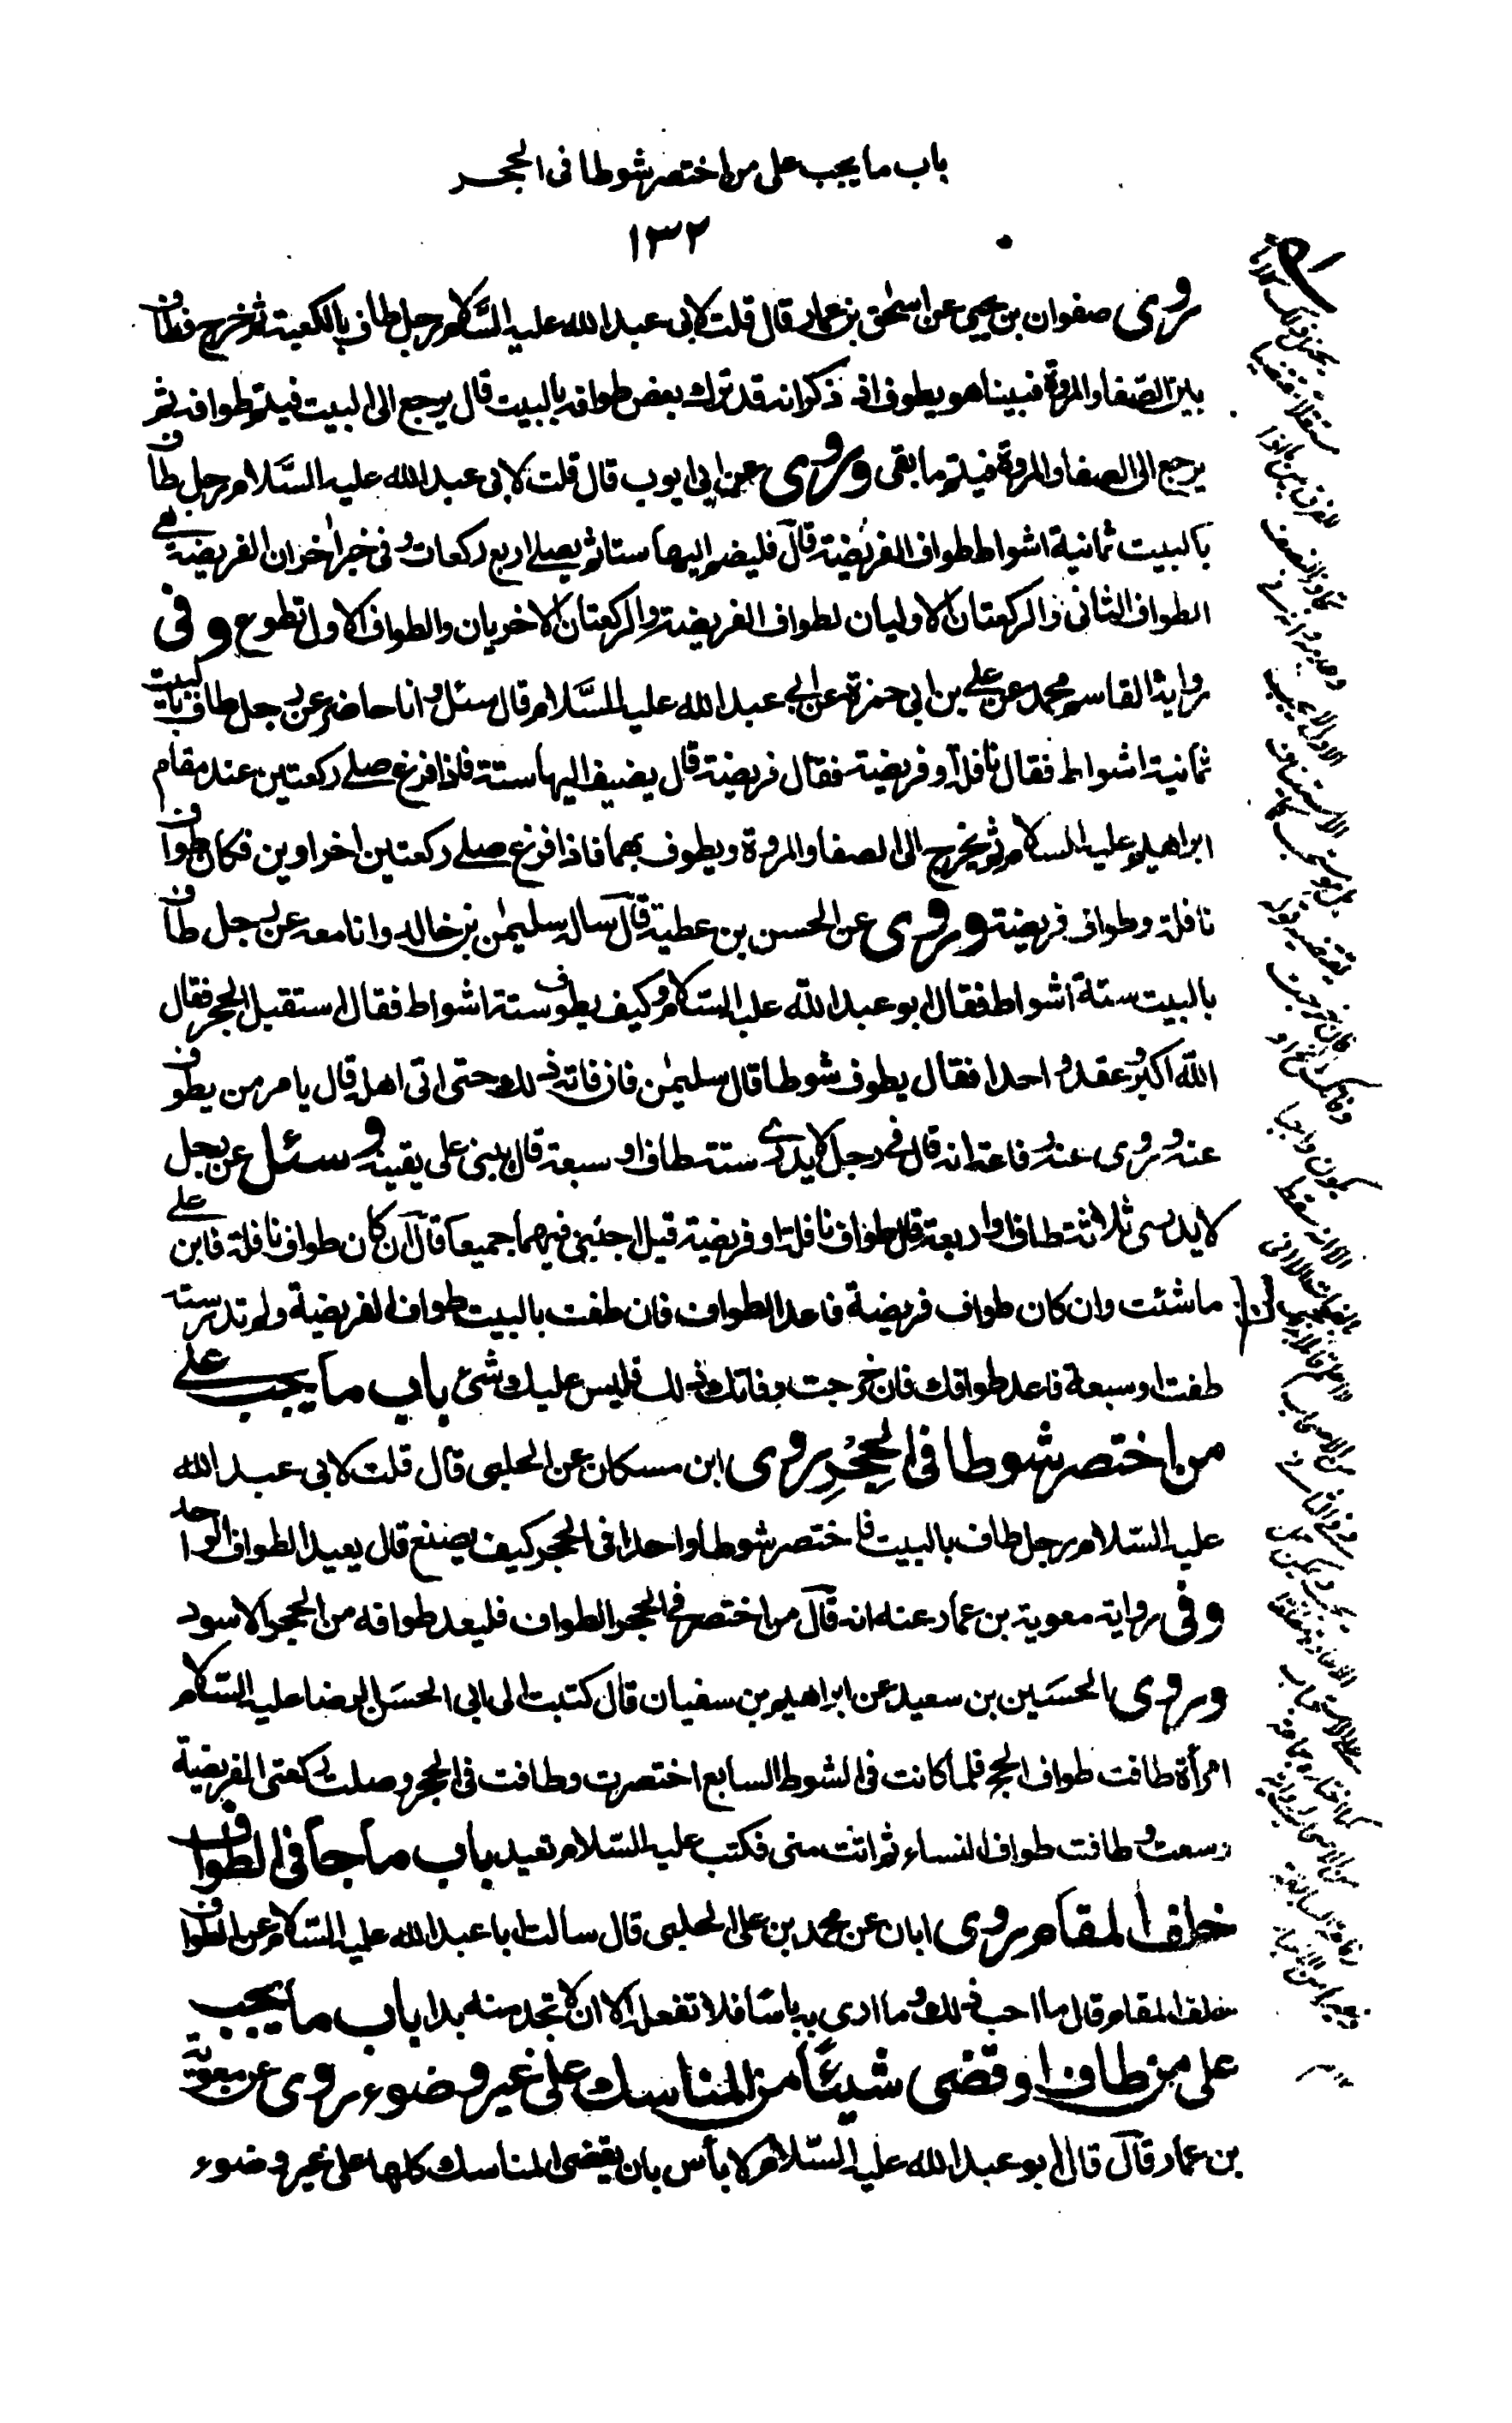 باب ما يجب على من اختصر شوطا فى الحجر
١٣٢
روى صفوان بن يحيى عن اسحق بن عمار قال قلت لابى عبد الله عليه السلام رجل طاف بالكعبة ثم خرج فطاف
بين الصفا والمروة فبينا هو يطوف اذ ذكر انه قد ترك بعض طوافه بالبيت قال يرجع الى البيت فيتم طوافه ثم
يرجع الى الصفا والمروة فيتم ما بقى وروى عن ابى ايوب قال قلت لابى عبد الله عليه السلام رجل طاف
بالبيت ثمانية اشواط طواف الفريضة قال فليضم اليها ستا ثم يصلى اربع ركعات وفى خبر اخر ان الفريضة هى
الطواف الثانى والركعتان الاوليان لطواف الفريضة والركعتان الاخريان والطواف الاول تطوع وفى
رواية القاسم بن محمد عن على بن ابى حمزة عن ابى عبد الله عليه السلام قال سئل وانا حاضر عن رجل طاف بالبيت
ثمانية اشواط فقال نافلة او فريضة فقال فريضة قال يضيف اليها ستة فاذا فرغ صلى ركعتين عند مقام
ابراهيم عليه السلام ثم يخرج الى الصفا والمروة ويطوف بهما فاذا فرغ صلى ركعتين اخراوين فكان طواف
نافلة وطواف فريضة وروى عن الحسن بن عطية قال ساله سليمن بن خالد وانا معه عن رجل طاف
بالبيت ستة اشواط فقال ابو عبد الله عليه السلام وكيف يطوف ستة اشواط فقال استقبل الحجر فقال
الله اكبر وعقد واحدا فقال يطوف شوطا قال سليمن فان فاته ذلك حتى اتى اهله قال يامر من يطوف
عنه وروى عنه رفاعة انه قال فى رجل لا يدرى ستة طاف او سبعة قال يبنى على يقينه وسئل عن رجل
لا يدرى ثلاثة طاف او اربعة قال طواف نافلة او فريضة قيل اجبنى فيهما جميعا قال ان كان طواف نافلة فابن على
ما شئت وان كان طواف فريضة فاعد الطواف فان طفت بالبيت طواف الفريضة ولم تدر ستة
طفت او سبعة فاعد طوافك فان خرجت وفاتك ذلك فليس عليك شئ باب ما يجب على
من اختصر شوطا فى الحجر روى ابن مسكان عن الحلبى قال قلت لابى عبد الله
عليه السلام رجل طاف بالبيت فاختصر شوطا واحدا فى الحجر كيف يصنع قال يعيد الطواف الواحد
وفى رواية معوية بن عمار عنه انه قال من اختصر فى الحجر الطواف فليعد طوافه من الحجر الاسود
وروى الحسين بن سعيد عن ابراهيم بن سفيان قال كتبت الى ابى الحسن الرضا عليه السلام
امرأة طافت طواف الحج فلما كانت فى الشوط السابع اختصرت وطافت فى الحجر وصلت ركعتى الفريضة
وسعت وطافت طواف النساء ثم اتت منى فكتب عليه السلام تعيد باب ما جآ فى الطواف
خلف المقام روى ابان عن محمد بن على الحلبى قال سالت ابا عبد الله عليه السلام عن الطواف
خلف المقام قال ما احب ذلك وما ارى به باسا فلا تفعله الا ان لا تجد منه بدا باب ما يجب
على من طاف او قضى شيئا من المناسك على غير وضوء روى عن معوية
بن عمار قال قال ابو عبد الله عليه السلام لا بأس بان يقضى المناسك كلها على غير وضوء